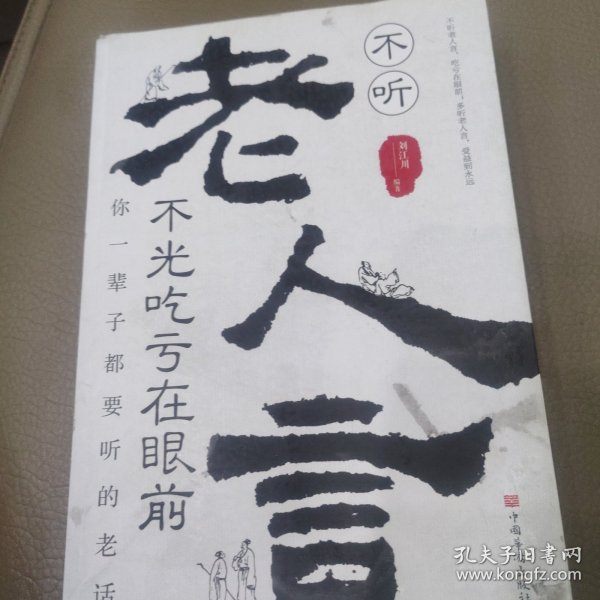 不听
老人言
不光吃亏在眼前
你一辈子都要听的老话
不听老人言，吃亏在眼前；多听老人言，受益到永远
刘江川
编著
孔夫子旧书网
www.kongfz.com